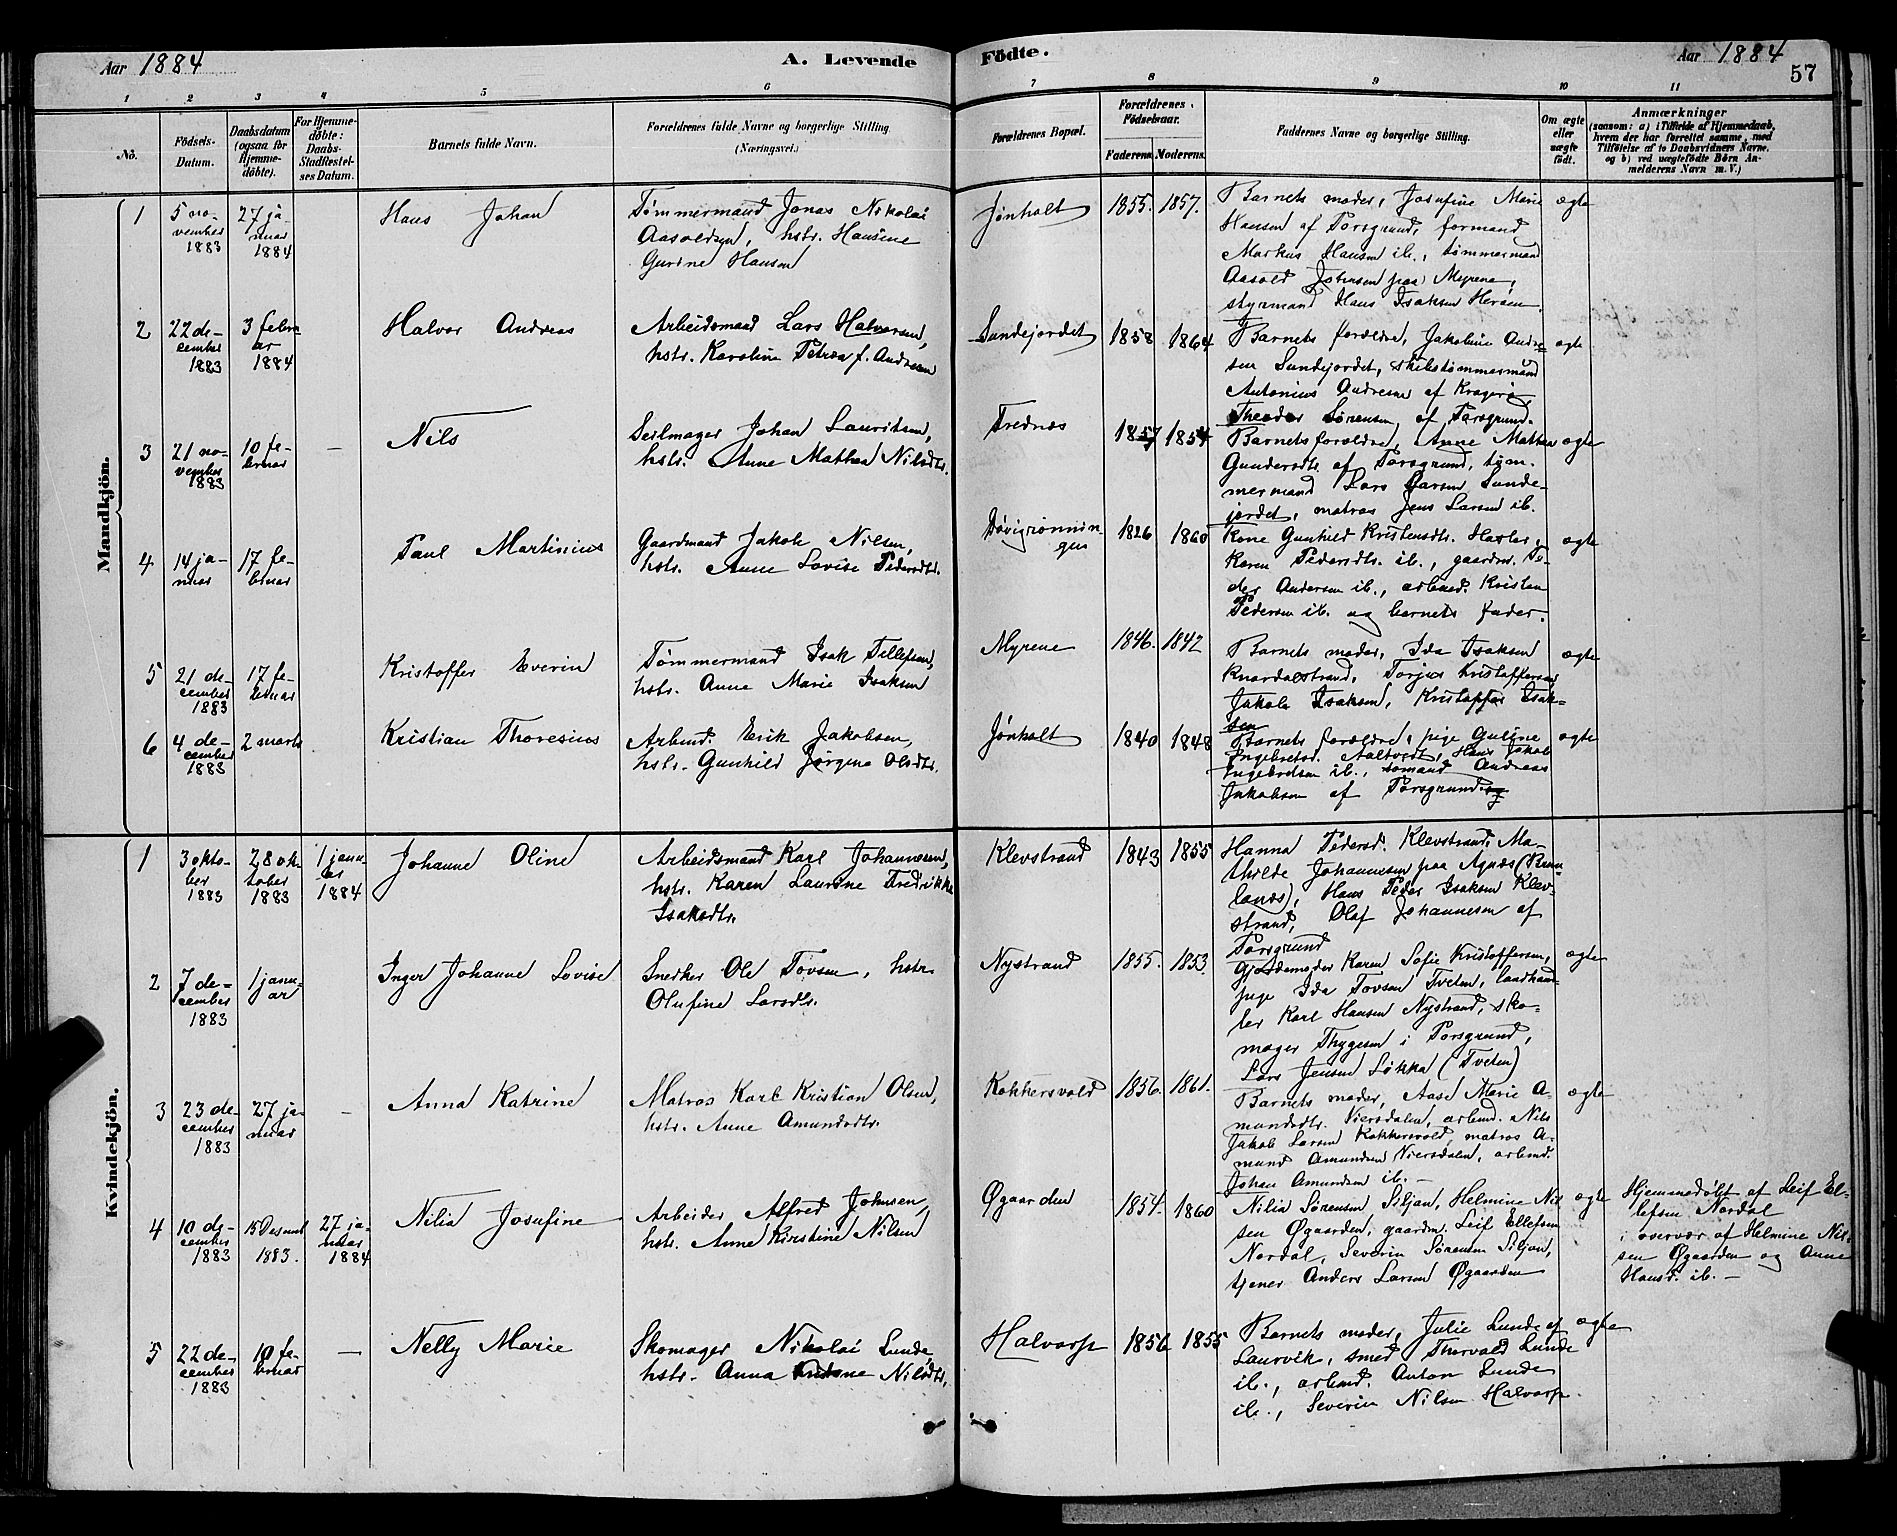 Aar 1884
A. Levende
Födte.
Aar 1884
57
1 2 3 4 5 6 7 8 9 10 11
No.
Födsels-
Datum.
Daabsdatum
(ogsaa for
Hjemme-
döbte).
For Hjemme-
döbte:
Daabs-
Stadfæstel-
ses Datum.
Barnets fulde Navn.
Forældrenes fulde Navne og borgerlige Stilling.
(Næringsvei.)
Forældrenes Bopæl.
Forældrenes
Födselsaar.
Faderens. Moderens.
Faddernes Navne og borgerlige Stilling.
Om ægte
eller
uægte
födt.
Anmærkninger
(saasom: a) i Tilfælde af Hjemmedaab,
hvem der har forrettet samme, med
Tilföielse af to Daabsvidners Navne,
og b) ved uægtefödte Börn An-
melderens Navn m. V.)
Mandkjön.
1
5 no-
vember
1883
27 ja-
nuar
1884
Hans Johan
Tømmermand Jonas Nikolai
Aasoldsen, hstr. Hansine
Gurine Hansen
Jønholt
1855. 1857.
Barnets moder, Josefine Marie
Hansen af Porsgrund, formand
Markus Hansen ib., tømmermand
Aasold Johnsen paa Myrene,
styrmand Hans Isaksen Herøen
ægte
2
22 de-
cember
1883
3 febru
ar
1884
Halvor Andreas
Arbeidsmand Lars Halvorsen,
hstr. Karoline Petrea f. Andresen
Sundejordet
1858 1864
Barnets forældre, Jakobine Andre-
sen Sundejordet, skibstømmermand
Antonius Andresen af Kragerø,
Theodor Sørensen af Porsgrund.
ægte
3
21 no-
vember
1883
10 fe-
bruar
—
Nils
Seilmager Johan Lauritsen,
hstr. Anne Mathea Nilsdtr.
Frednæs
1857 1854
Barnets forældre, Anne Mathea
Gundersdtr. af Porsgrund, tøm-
mermand Lars Larsen Sunde-
jordet, matros Jens Larsen ib.
ægte
4
14 ja-
nuar
17 fe-
bruar
Paul Martinius
Gaardmand Jakob Nilsen,
hstr. Anne Lovise Pedersdtr.
Døvigrønnin-
gen
1826 1860
Kone Gunhild Kristensdtr.
Karen Pedersdtr. ib., gaardm. Pe-
der Andersen ib., arbmd. Kristen
Pedersen ib. og barnets fader.
ægte
5
21 de-
cember
1883
17 fe-
bruar
Kristoffer Everin
Tømmermand Isak Tellefsen,
hstr. Anne Marie Isaksen
Myrene
1846. 1842
Barnets moder, Ida Isaksen
Knardalstrand, Torjus Kristoffersen
Jakob Isaksen, Kristoffer Isak-
sen
ægte
6
4 de-
cember
1883
2 marts
Kristian Thoresius
Arbmd. Erik Jakobsen,
hstr. Gunhild Jørgine Olsdtr.
Jønholt
1840 1848
Barnets forældre, pige Guline
Ingebretsd. Aaltvedt, Hans Jakob
Ingebretsen ib., sømand Andreas
Jakobsen af Porsgrund og
ægte
Kvindekjön.
1
3 okto-
ber
1883
28 ok-
tober
1883
1 janu-
ar
1884
Johanne Oline
Arbeidsmand Karl Johannesen,
hstr. Karen Laurine Fredrikke
Isaksdtr.
Klevstrand
1843 1855
Hanna Pedersd. Klevstrand, Ma-
thilde Johannesen paa Agnæs (Brun-
lanæs), Hans Peder Isaksen Klev-
strand, Olaf Johannesen af
Porsgrund
2
7 de-
cember
1883
1 janu-
ar
Inger Johanne Lovise
Snedker Ole Tovsen, hstr.
Olufine Larsdtr.
Nystrand
1855. 1853
Gjordemoder Karen Sofie Kristoffersen,
pige Ida Tovsen Tveten, landhan-
ler Karl Hansen Nystrand, sko-
mager Thygesen i Porsgrund,
Lars Jensen Løkka (Tveten)
ægte
3
23 de-
cember
1883
27 ja-
nuar
—
Anna Katrine
Matros Karl Kristian Olsen,
hstr. Anne Amundsdtr.
Kokkersvold
1856. 1861.
Barnets moder, Aase Marie A-
mundsdtr. Viersdalen, arbmd. Nils
Jakob Larsen Kokkersvold, matros A-
mund Amundsen Viersdalen, arbmd.
Johan Amundsen ib. —
ægte
4
10 de-
cember
1883
15 Decembr
1883.
27 ja-
nuar
1884
Nilia Josefine
Arbeider Alfred Johnsen,
hstr. Anne Kirstine Nilsen
Øgaarden
1854. 1860
Nilia Sørensen Siljan, Helmine Nil-
sen Øgaarden, gaardm. Leif Ellefsen
Nordal, Severin Sørensen Siljan,
tjener Anders Larsen Øgaarden
ægte
Hjemmedøbt af Leif El-
lefsen Nordal
i overvær af Helmine Nil-
sen Øgaarden og Anne
Hansd. ib. —
5
22 de-
cember
1883
10 fe-
bruar
—
Nelly Marie
Skomager Nikolai Lunde
hstr. Anna Nilsdtr.
Halvarp
1856 1855
Barnets moder, Julie Lunde af
Laurvik, smed Thorvald Lunde
ib., arbmd. Anton Lunde
ib., Severin Nilsen Halvarp.
ægte